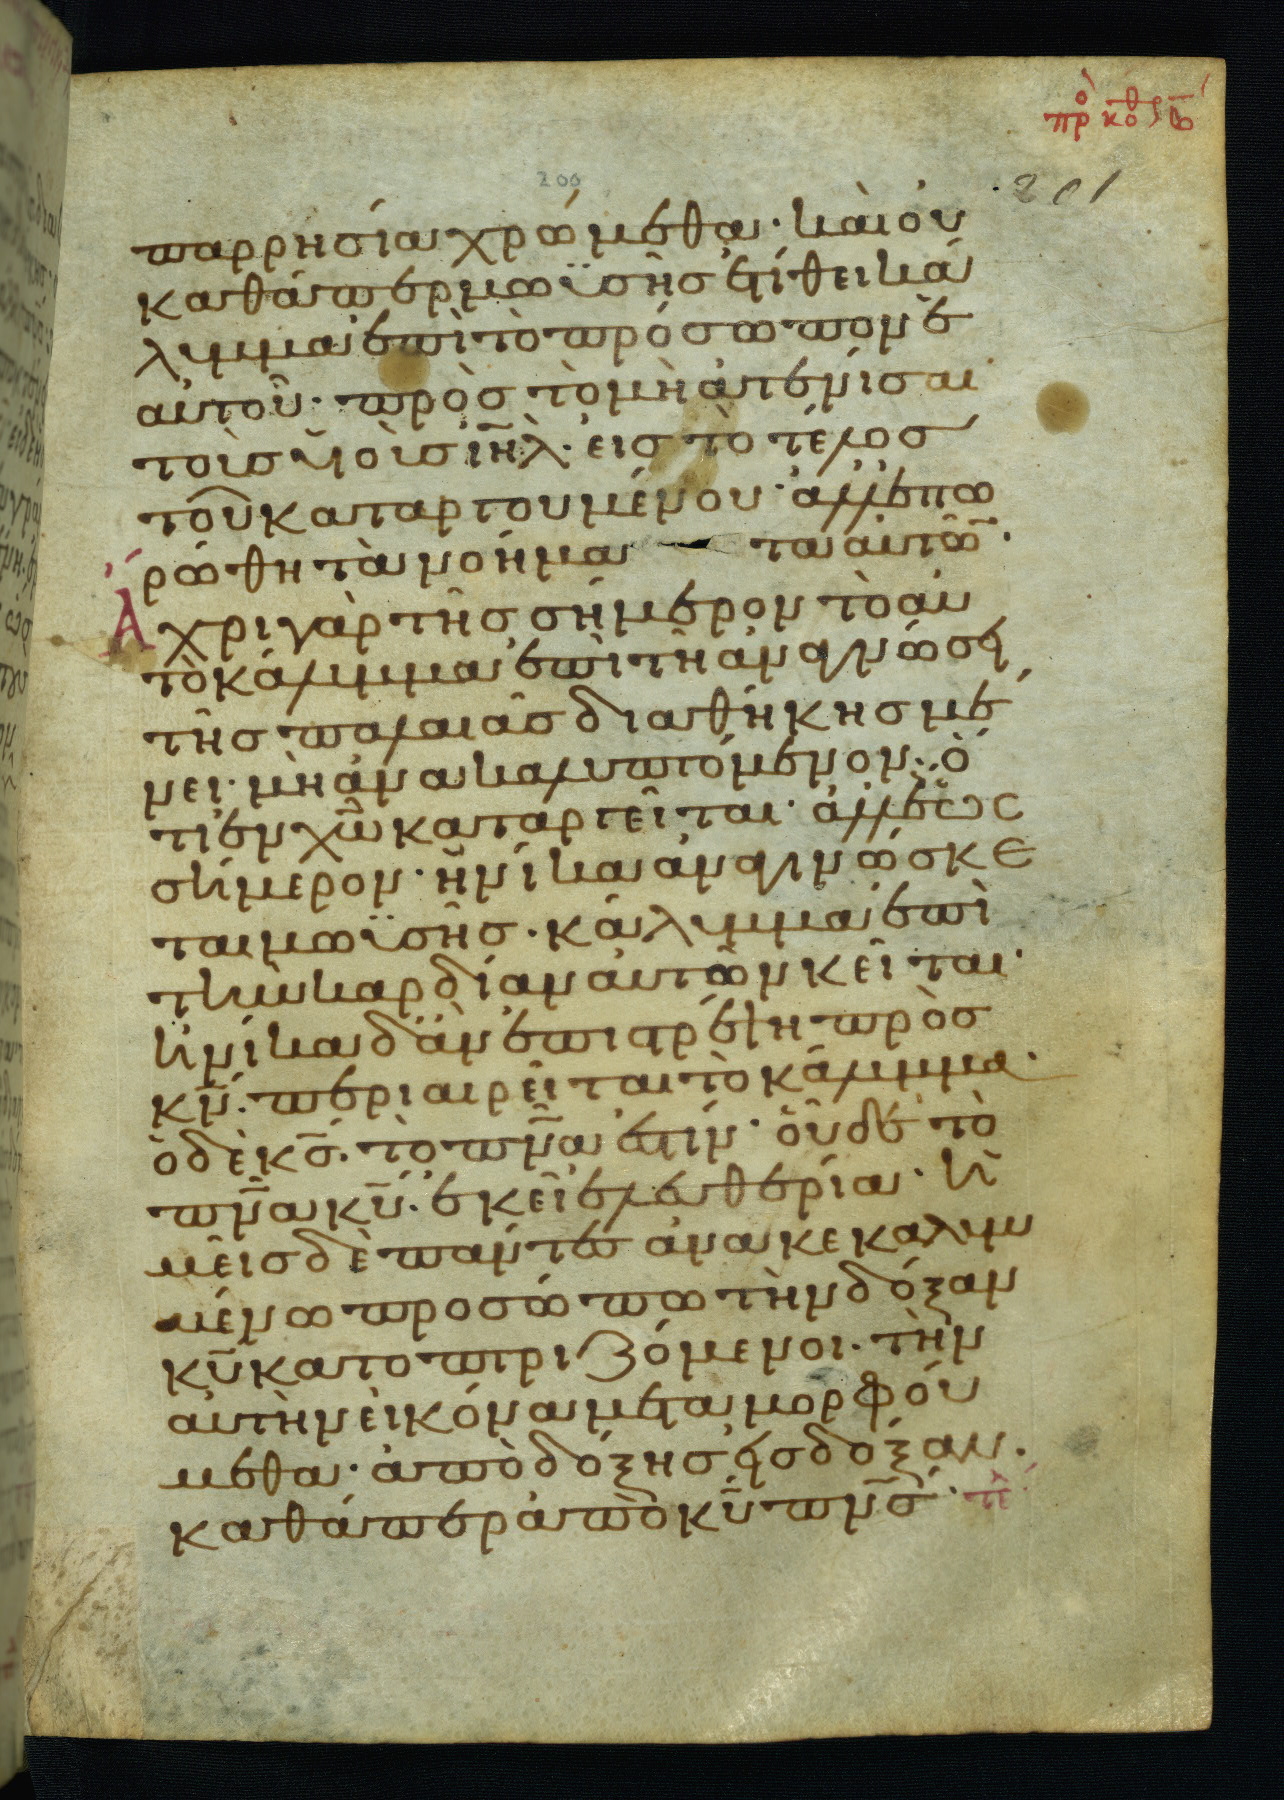 πρὸ κοθ β
201
200
παρρησία χρώμεθα· καὶ οὐ
καθάπερ μωϋσῆς ἐτίθει κά
λυμμα ἐπὶ τὸ πρόσωπον ἑ
αυτοῦ· πρὸς τὸ μὴ ἀτενίσαι
τοὺς υἱοὺς ιηλ· εἰς τὸ τέλος
τοῦ καταργουμένου· ἀλλ' ἐπω
ρώθη τὰ νοήμα τα αὐτῶ·
Ἄ χρι γὰρ τῆς σήμερον τὸ αὐ
τὸ κάλυμμα ἐπὶ τῆ ἀναγνώσει
τῆς παλαιᾶς διαθήκης μέ
νει· μὴ ἀνακαλυπτόμενον· ὅ
τι ἐν χω καταργεῖται· ἀλλ' ἕως
σήμερον· ἡνίκα ἀναγινώσκε
ται μωϋσῆς· κάλυμμα ἐπὶ
τὴν καρδίαν αὐτῶν κεῖται·
ἡνίκα δ' ἂν ἐπιστρέψη πρὸς
κν· περιαιρεῖται τὸ κάλυμμα·
ὁ δὲ κς· τὸ πνα ἐστίν· οὗ δὲ τὸ
πνα κυ· ἐκεῖ ἐλευθερία· ἡ
μεῖς δὲ πάντες ἀνακεκαλυμ
μένω προσώπω τὴν δόξαν
κυ κατοπτριζόμενοι· τὴν
αὐτὴν εἰκόνα μεταμορφού
μεθα· ἀπὸ δόξης εἰς δόξαν·
καθάπερ ἀπὸ κυ πνς· τε